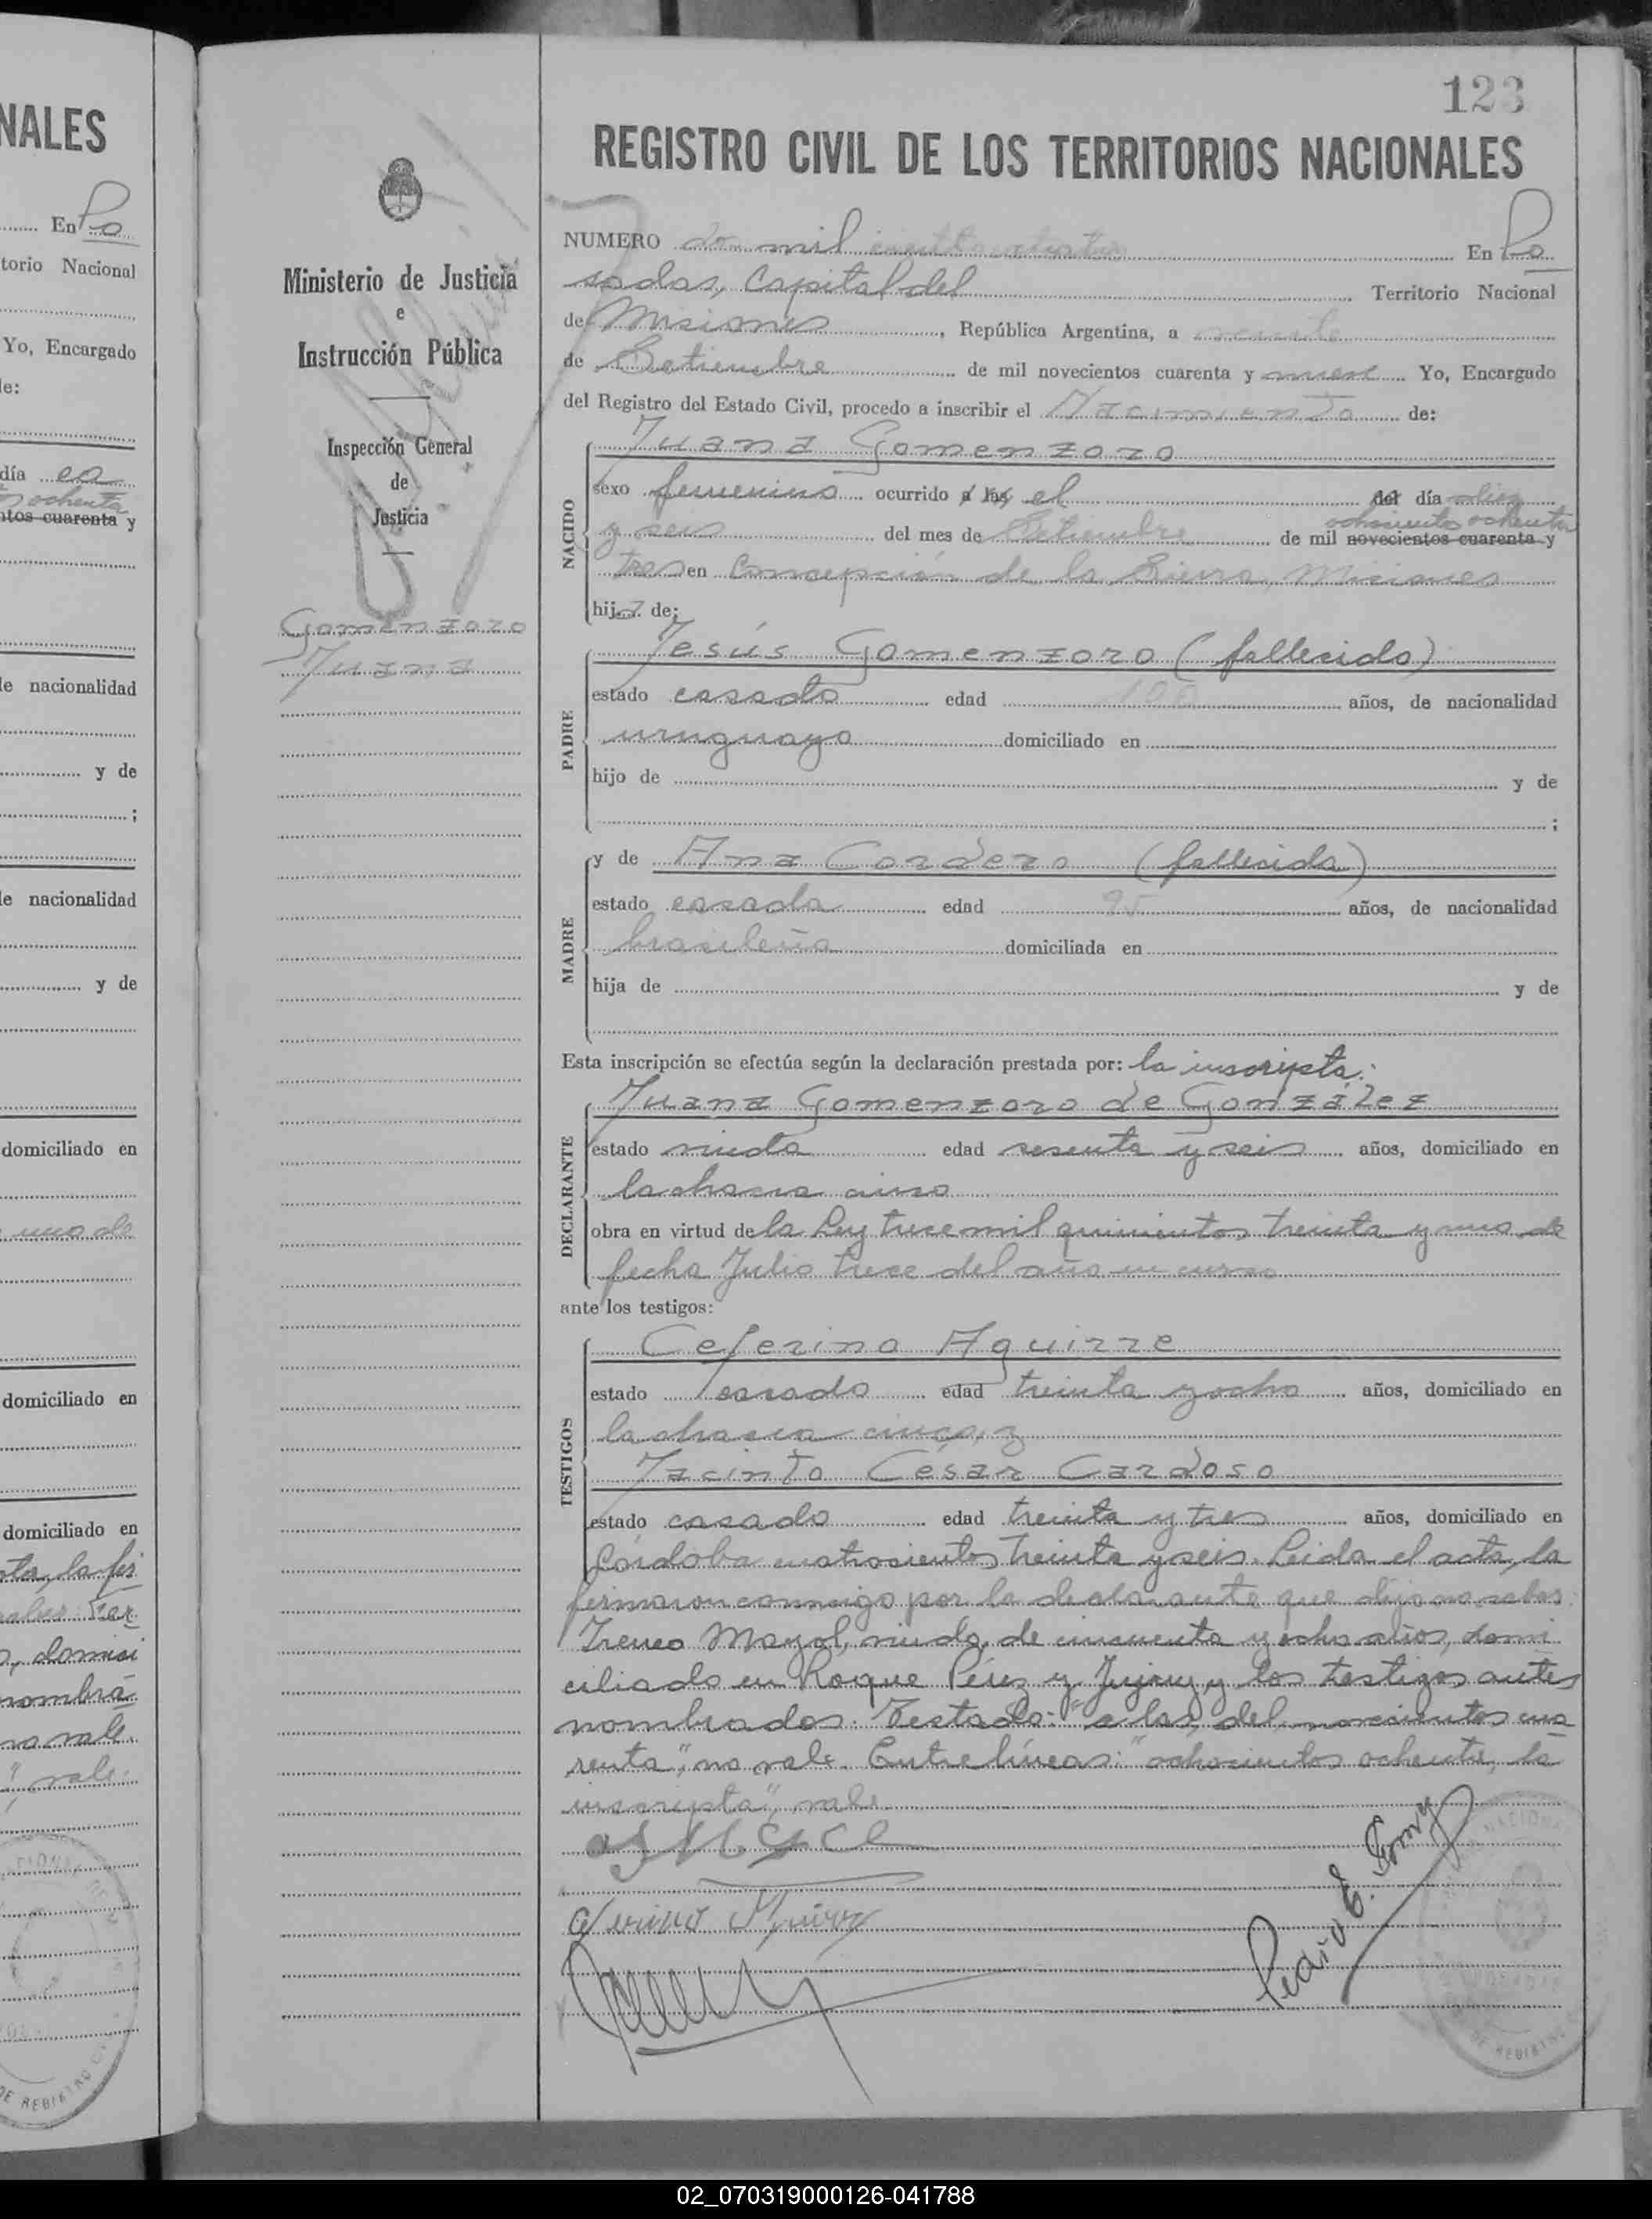 123
REGISTRO CIVIL DE LOS TERRITORIOS NACIONALES
NUMERO dos mil En Po
sadas, Capital del Territorio Nacional
de Misiones, República Argentina, a veinte
de Setiembre de mil novecientos cuarenta y nueve Yo, Encargado
del Registro del Estado Civil, procedo a inscribir el Nacimiento de:
NACIDO
Juana Gomenzoro
sexo femenino ocurrido a las el del día diez
ochocientos ochenta
y seis del mes de Setiembre de mil novecientos cuarenta y
tres en Concepción de la Sierra, Misiones
hija de:
PADRE
Jesús Gomenzoro (fallecido)
estado casado edad 100 años, de nacionalidad
uruguayo domiciliado en
hijo de y de
;
MADRE
y de Ana Cordero (fallecida)
estado casada edad 95 años, de nacionalidad
brasileña domiciliada en
hija de y de
Esta inscripción se efectúa según la declaración prestada por: la inscripta:
DECLARANTE
Juana Gomenzoro de González
estado viuda edad sesenta y seis años, domiciliado en
la chacra cinco
obra en virtud de la Ley trece mil quinientos treinta y uno de
fecha Julio trece del año en curso
ante los testigos:
TESTIGOS
Ceferino Aguirre
estado casado edad treinta y ocho años, domiciliado en
la chacra cinco, y
Jacinto César Cardoso
estado casado edad treinta y tres años, domiciliado en
Córdoba cuatrocientos treinta y seis. Leida el acta, la
firmaron conmigo por la declarante que dijo no saber
Ireneo Mayol, viudo, de cincuenta y ocho años, domi
ciliado en Roque Pérez y Jujuy y los testigos antes
nombrados. Testado: "a las, del, novecientos cua
renta", no vale. Entre líneas: "ochocientos ochenta, la
inscripta", vale.
Ministerio de Justicia
e
Instrucción Pública
Inspección General
de
Justicia
Gomenzoro
Juana
NALES
En Po
torio Nacional
Yo, Encargado
de:
día ca
ochenta
ntos cuarenta y
de nacionalidad
y de
;
de nacionalidad
y de
domiciliado en
uno de
domiciliado en
domiciliado en
ta, la fir
domici
nombra
no vale.
", vale.
02_070319000126-041788